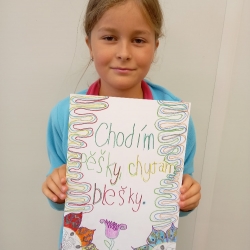 Chodím
pěšky, chytám
blešky.